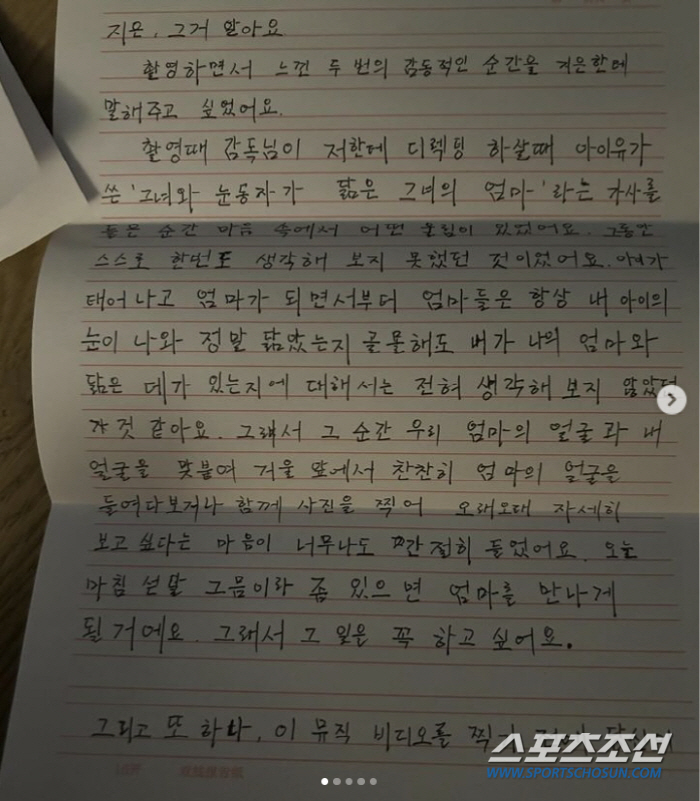 지은, 그거 알아요
촬영하면서 느낀 두 번의 감동적인 순간을 지은한테
말해주고 싶었어요.
촬영때 감독님이 저한테 디렉팅 하실때 아이유가
쓴 '그녀와 눈동자가 닮은 그녀의 엄마'라는 가사를
들은 순간 마음 속에서 어떤 울림이 있었어요. 그동안
스스로 한번도 생각해 보지 못했던 것이었어요. 아이가
태어나고 엄마가 되면서부터 엄마들은 항상 내 아이의
눈이 나와 정말 닮았는지 골몰해도 내가 나의 엄마와
닮은 데가 있는지에 대해서는 전혀 생각해 보지 않았던
것 같아요. 그래서 그 순간 우리 엄마의 얼굴과 내
얼굴을 맞붙여 거울 앞에서 찬찬히 엄마의 얼굴을
들여다보거나 함께 사진을 찍어 오래오래 자세히
보고 싶다는 마음이 너무나도 간절히 들었어요. 오늘
마침 섣달 그믐이라 좀 있으면 엄마를 만나게
될 거예요. 그래서 그 일은 꼭 하고 싶어요.
그리고 또 하나, 이 뮤직 비디오를
스포츠조선
WWW.SPORTSCHOSUN.COM